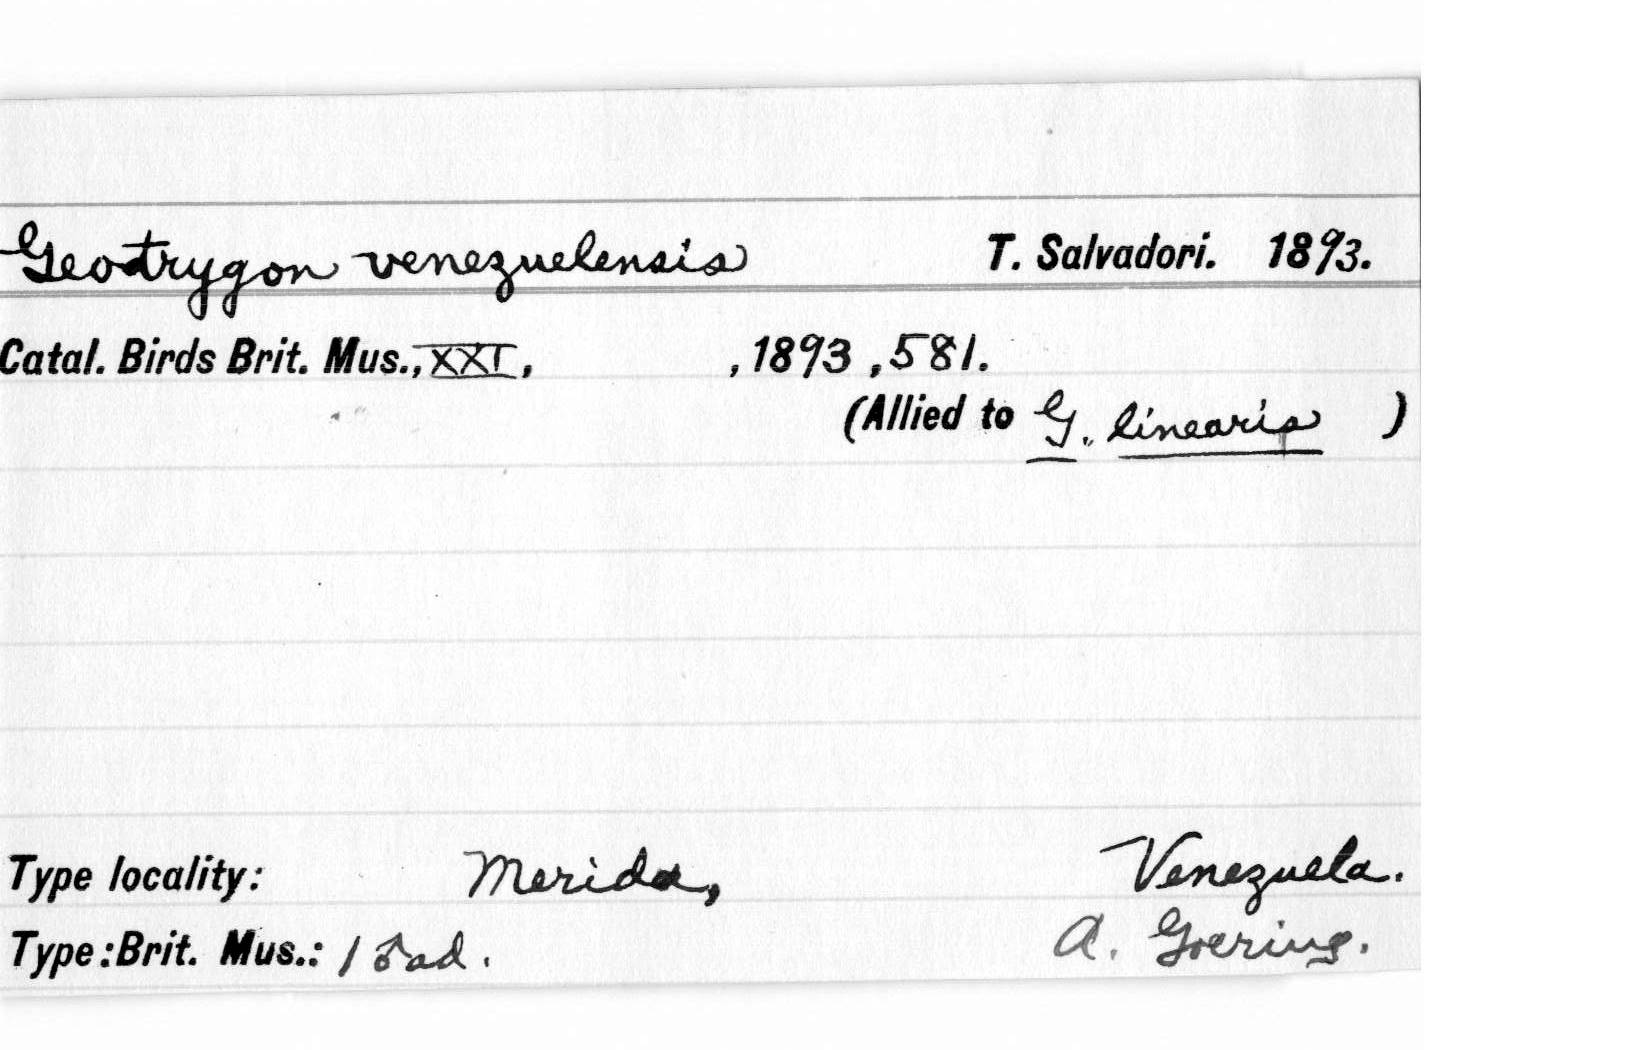 Geotrygon venezuelensis T. Salvadori. 1893.
Catal. Birds Brit. Mus., XXI, , 1893, 581.
(Allied to G. linearis )
Type locality: Merida, Venezuela.
Type: Brit. Mus.: 1 ♂ ad. A. Goering.